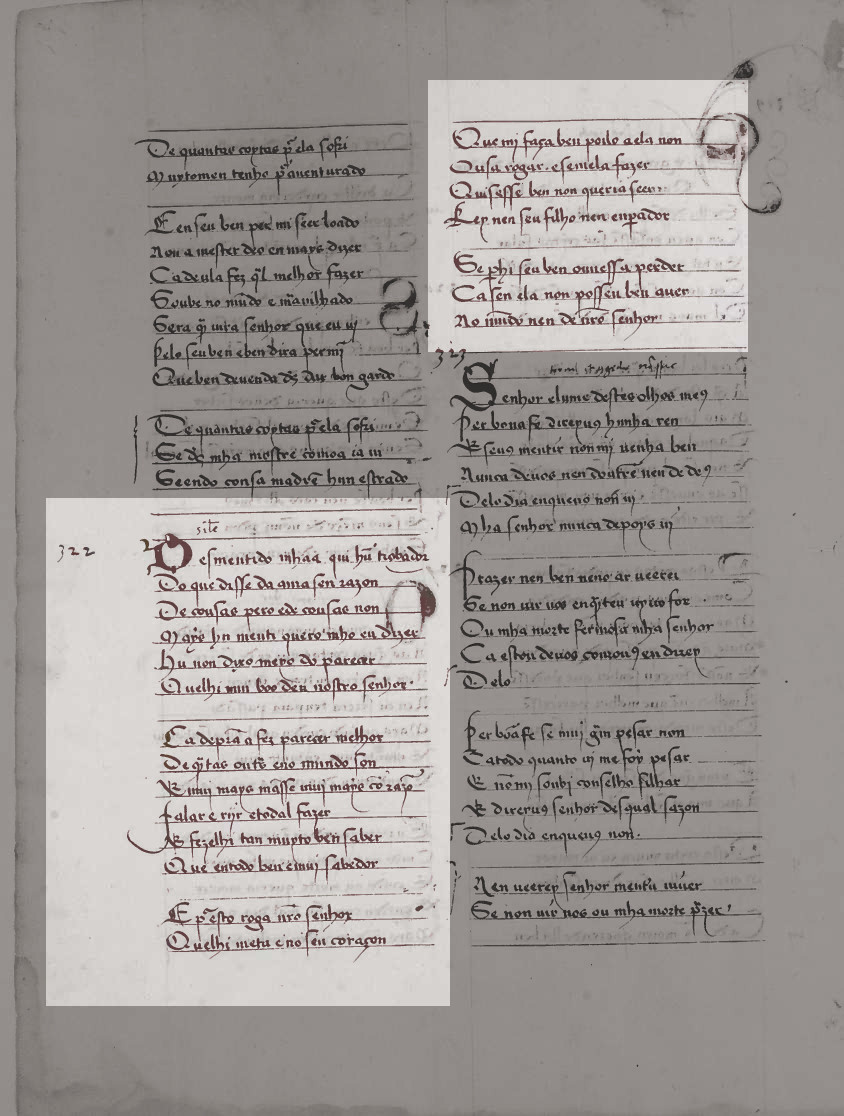 De quantas coytas p̃ ela sofri
Muytomen tenho p̃ auenturado
E en seu ben per mi seer loado
Non a mester deo en mays dizer
Ca deula fez q̃l melhor fazer
Soube no mũdo e m̃auilhado
Sera q̃ uira senhor que eu ui
Pelo seu ben e ben dira per mĩ
Que ben deuenda d's dar bon gardo
De quantas coytas p̃ ela sofri
Se d's mha mostre comoa ia ui
Seendo con sa madrẽ hun estrado
322
Desmentido mhaa qui hũ trobador
Do que disse da ama sen razon
De cousas pero e de cousas non
Mays hu menti quero mho eu dizer
Hu non dixo meyo do parecer
Quelhi mui boo deu nostro senhor
Ca de prã a fez parecer melhor
De q̃tas outrs eno mundo son
E mui mays mãsse mui mays cõ razõ
Falar e rijr e todal fazer
E fezelhi tan muyto ben saber
Que en todo ben e mui sabedor
E p̃ esto roga nrõ senhor
Quelhi meta eno seu coraçon
Que mj faça ben poilo a ela non
Ousa rogar. e semela fazer
Quisesse ben non queria seer
Rey nen seu filho nen enp̃ador
Se p̱hi seu ben ouuessa perder
Ca sen ela non posseu ben auer
No mũdo nen de nrõ senhor
323
Senhor e lume destes olhos me9
Per bona fe direyu9 hunha ren
E seu9 mentir non mj uenha ben
Nunca deuos nen doutrẽ nen de de9
Delo dia en que u9 non ui
Mha senhor nunca depoys ui
Prazer nen ben neno ar ueerei
Se non uir uos en q̃nteu uyuo for
Ou mha morte fermosa mha senhor
Ca estou deuos como u9 eu direy
Delo
Per boã fe se mui g̃m pesar non
Ca todo quanto ui me foy pesar
E nõ mj soubi conselho filhar
E direyu9 senhor desqual sazon
Delo dia en que u9 non.
Nen ueerey senhor mentrũ uiuer
Se non uir uos ou mha morte p̃zer